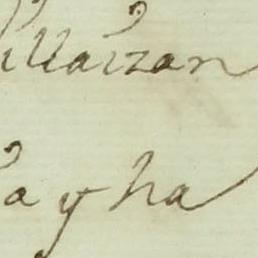 illaizan
a y ha